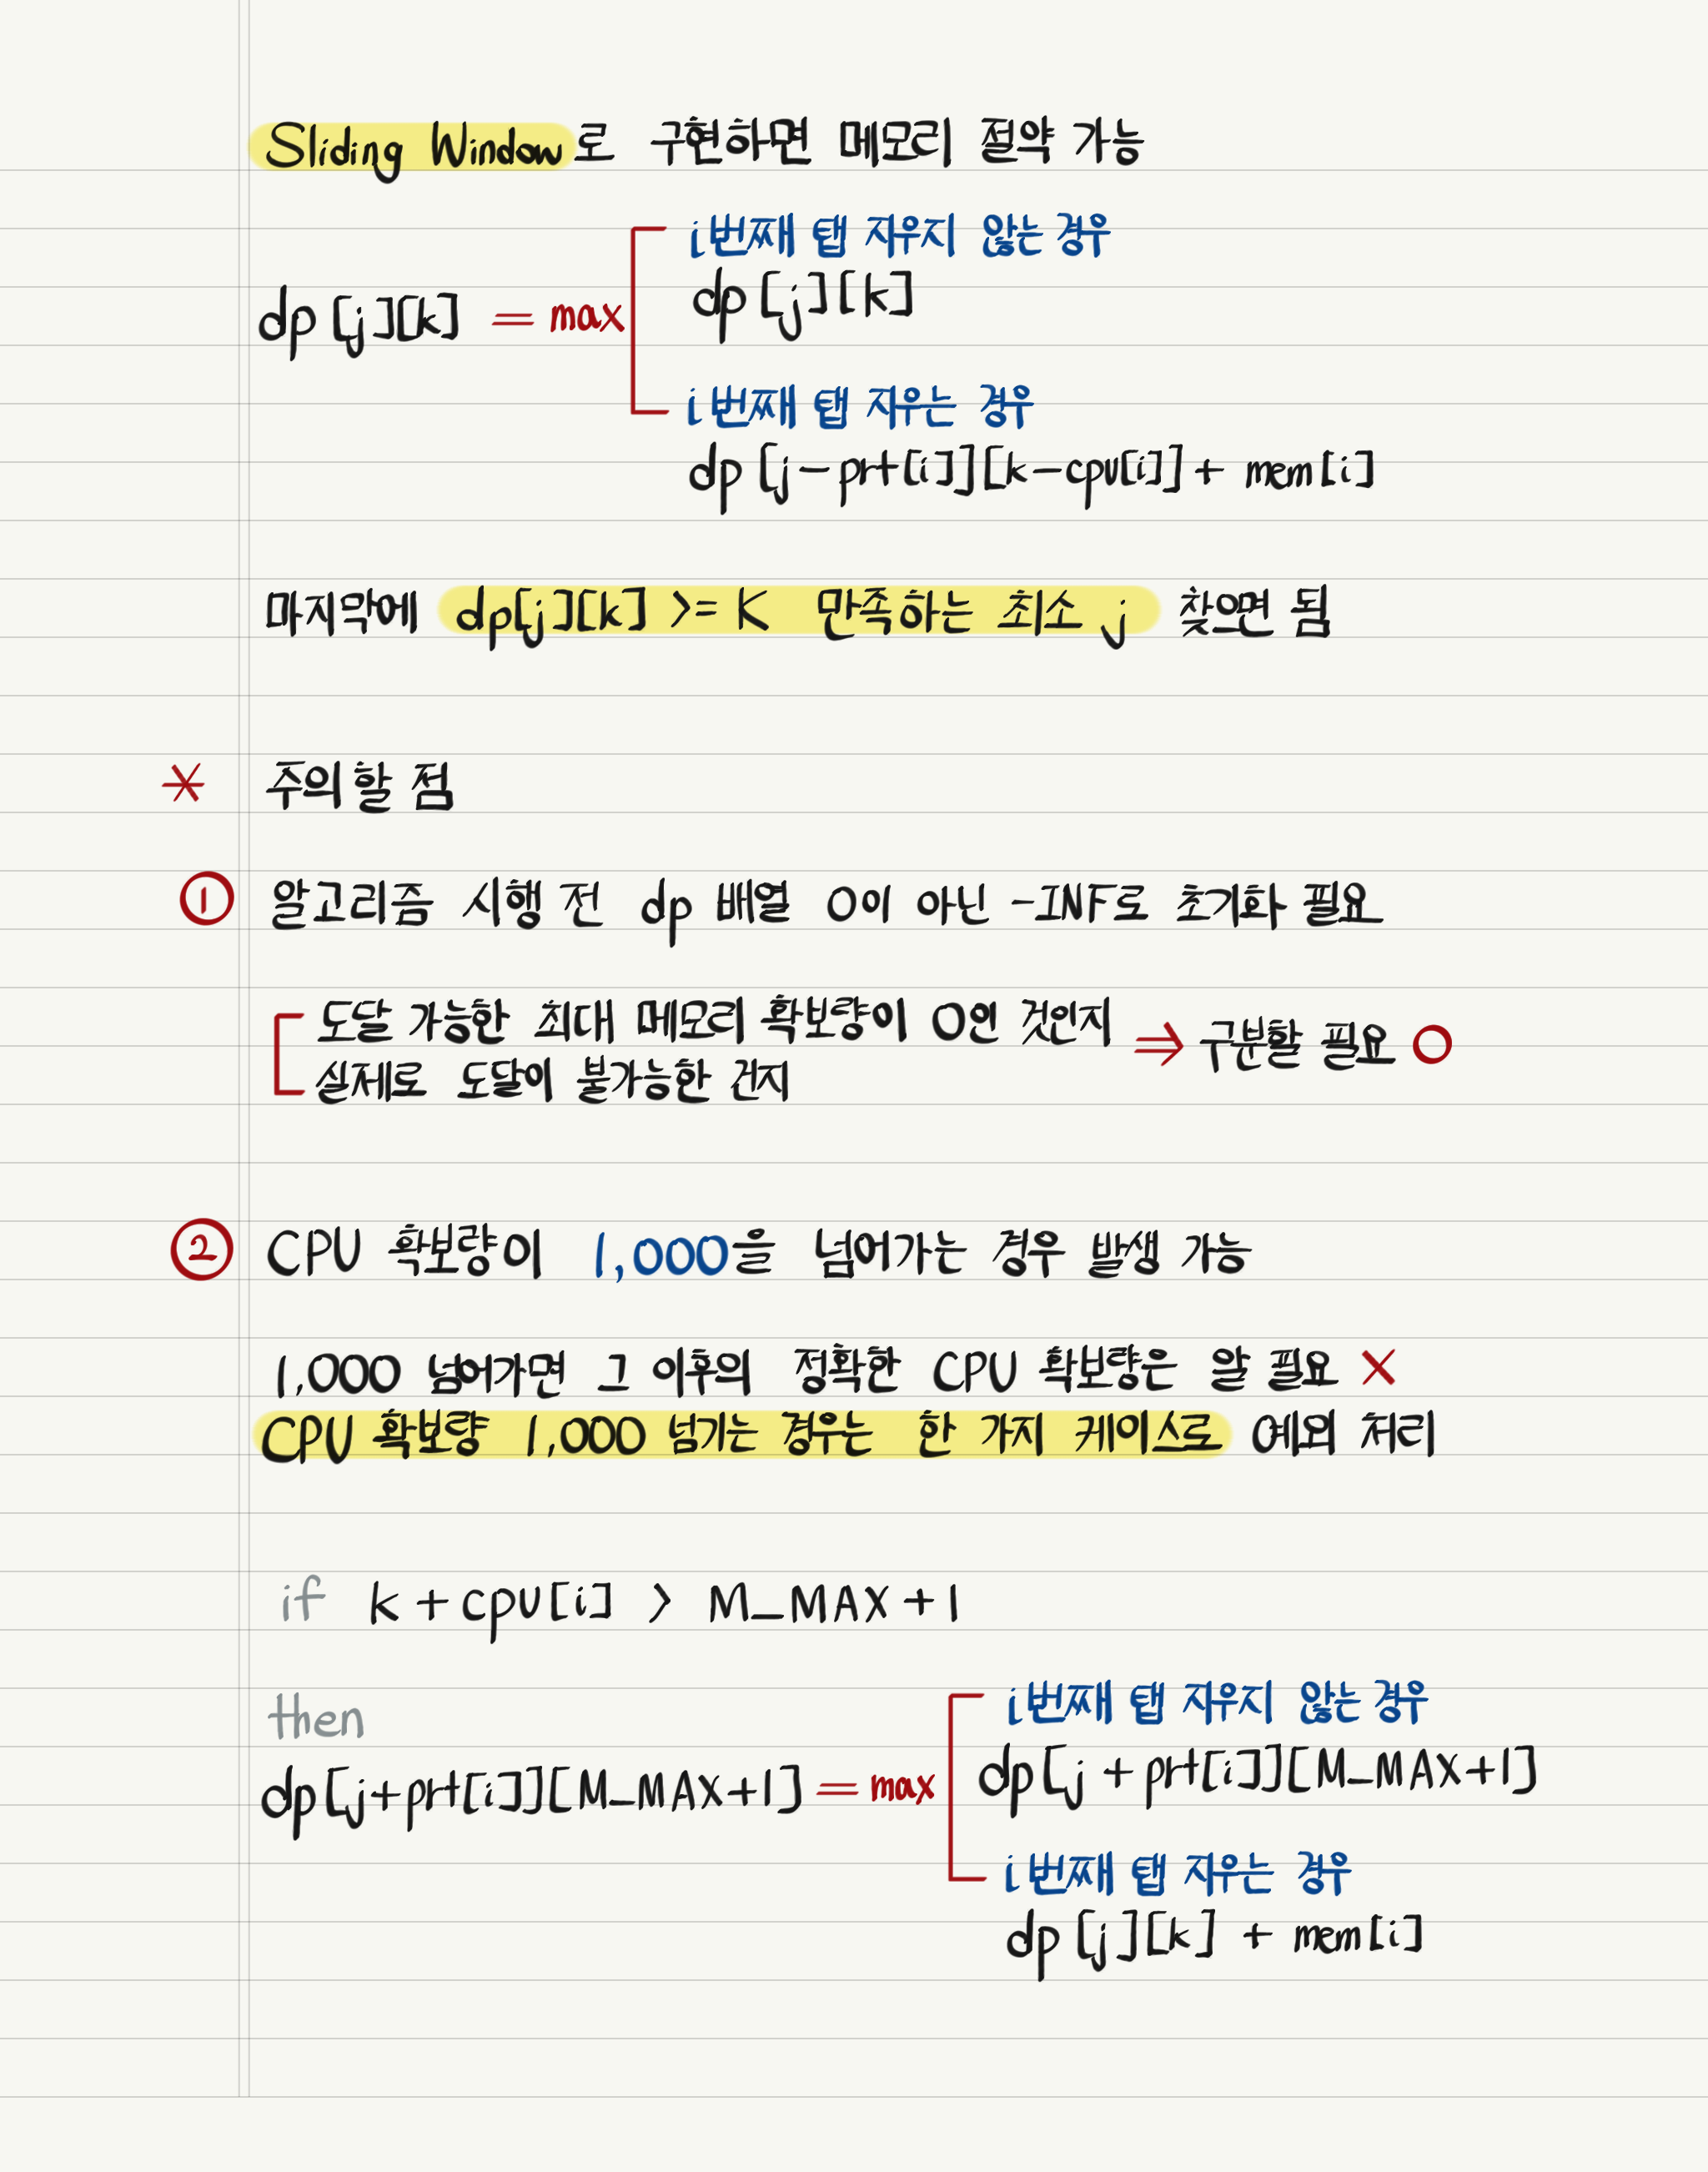 Sliding Window로 구현하면 메모리 절약 가능
i번째 탭 지우지 않는 경우
dp[j][k] = max dp[j][k]
i번째 탭 지우는 경우
dp[j-prt[i]][k-cpu[i]] + mem[i]
마지막에 dp[j][k] >= K 만족하는 최소 j 찾으면 됨
* 주의할 점
① 알고리즘 시행 전 dp 배열 0이 아닌 -INF로 초기화 필요
도달 가능한 최대 메모리 확보량이 0인 것인지 ⇒ 구분할 필요 O
실제로 도달이 불가능한 건지
② CPU 확보량이 1,000을 넘어가는 경우 발생 가능
1,000 넘어가면 그 이후의 정확한 CPU 확보량은 알 필요 X
CPU 확보량 1,000 넘기는 경우는 한 가지 케이스로 예외 처리
if k + cpu[i] > M_MAX + 1
then
i번째 탭 지우지 않는 경우
dp[j+prt[i]][M_MAX+1] = max dp[j + prt[i]][M_MAX+1]
i번째 탭 지우는 경우
dp[j][k] + mem[i]